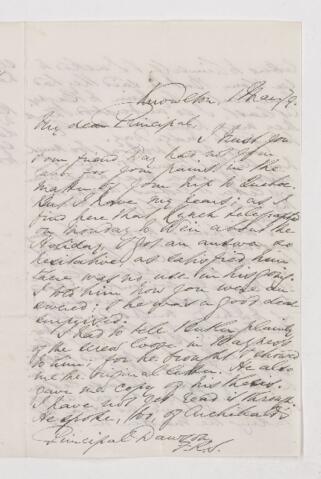 Knowlton, 1 May/9.
My dear Principal,
I trust you
& our friend Day has not been
for your pains in the
matter of your trip to Quebec.
But I have my fears; as I
find here that Lynch telegraphed
on Monday to about the
Holiday, & got an answer so
as satisfied him
there was no use in his going.
I told him how you were
& he was a good deal
surprised.
I had to tell plainly
of the in Day's
to him. For he brought & showed
me the original letter. He also
gave me copy of his
I have not yet read it through.
He spoke, too, of Archibald's
Principal Dawson
F.R.S.